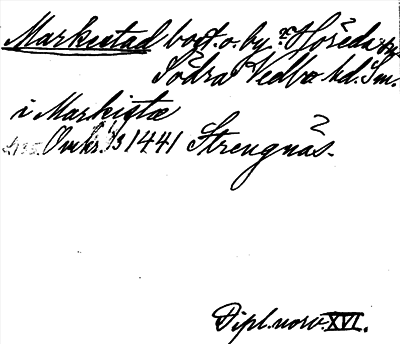 Markestad bost. o. by. i Höreda sn.
Södra Vedbo hd. Sm.
i Markistæ
Avskr. 1/3 1441 Strengnäs.
Dipl. norv. XVI.